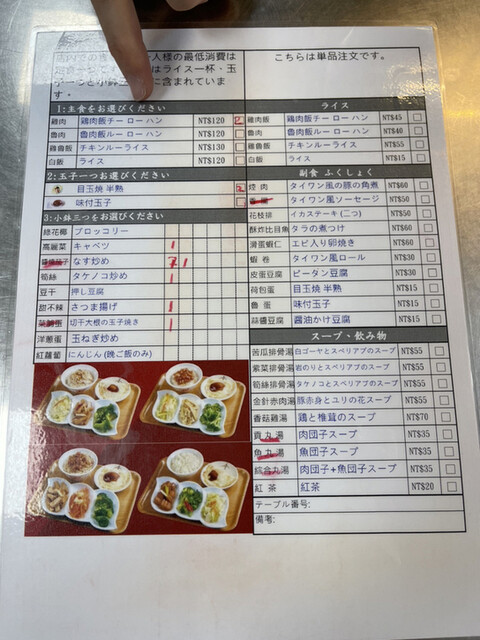 人様の最低消費は
はライス一杯・玉
に含まれていま
す・
1:主食をお選びください
雞肉 鶏肉飯チー ロー ハン NT$120 2
魯肉 魯肉飯ルー ロー ハン NT$120
雞魯飯 チキンルーライス NT$130
白飯 ライス NT$120
2:玉子一つをお選びください
目玉焼 半熟 2
味付玉子
3:小鉢三つをお選びください
綠花椰 ブロッコリー
高麗菜 キャベツ 1
なす炒め 1
筍絲 タケノコ炒め 1
豆干 押し豆腐
甜不辣 さつま揚げ 1
切干大根の玉子焼き 1
洋蔥蛋 玉ねぎ炒め
紅蘿蔔 にんじん(晩ご飯のみ)
こちらは単品注文です。
ライス
雞肉飯 鶏肉飯チー ロー ハン NT$45
魯肉飯 魯肉飯ルー ロー ハン NT$40
雞魯飯 チキンルーライス NT$55
白飯 ライス NT$15
副食 ふくしょく
焢肉 タイワン風の豚の角煮 NT$60
タイワン風ソーセージ NT$50
花枝排 イカステーキ(二つ) NT$50
酥炸比目魚 タラの煮つけ NT$60
滑蛋蝦仁 エビ入り卵焼き NT$60
蝦卷 タイワン風ロール NT$30
皮蛋豆腐 ピータン豆腐 NT$30
荷包蛋 目玉焼 半熟 NT$15
魯蛋 味付玉子 NT$15
蒜醬豆腐 醤油かけ豆腐 NT$20
スープ・飲み物
苦瓜排骨湯 白ゴーヤとスペリアブのスープ NT$55
紫菜排骨湯 岩のりとスペリアブのスープ NT$55
筍絲排骨湯 タケノコとスペリアブのスープ NT$55
金針赤肉湯 豚赤身とユリの花スープ NT$55
香菇雞湯 鶏と椎茸のスープ NT$70
貢丸湯 肉団子スープ NT$35
魚丸湯 魚団子スープ NT$35
綜合丸湯 肉団子+魚団子スープ NT$35
紅茶 紅茶 NT$20
テーブル番号:
備考: